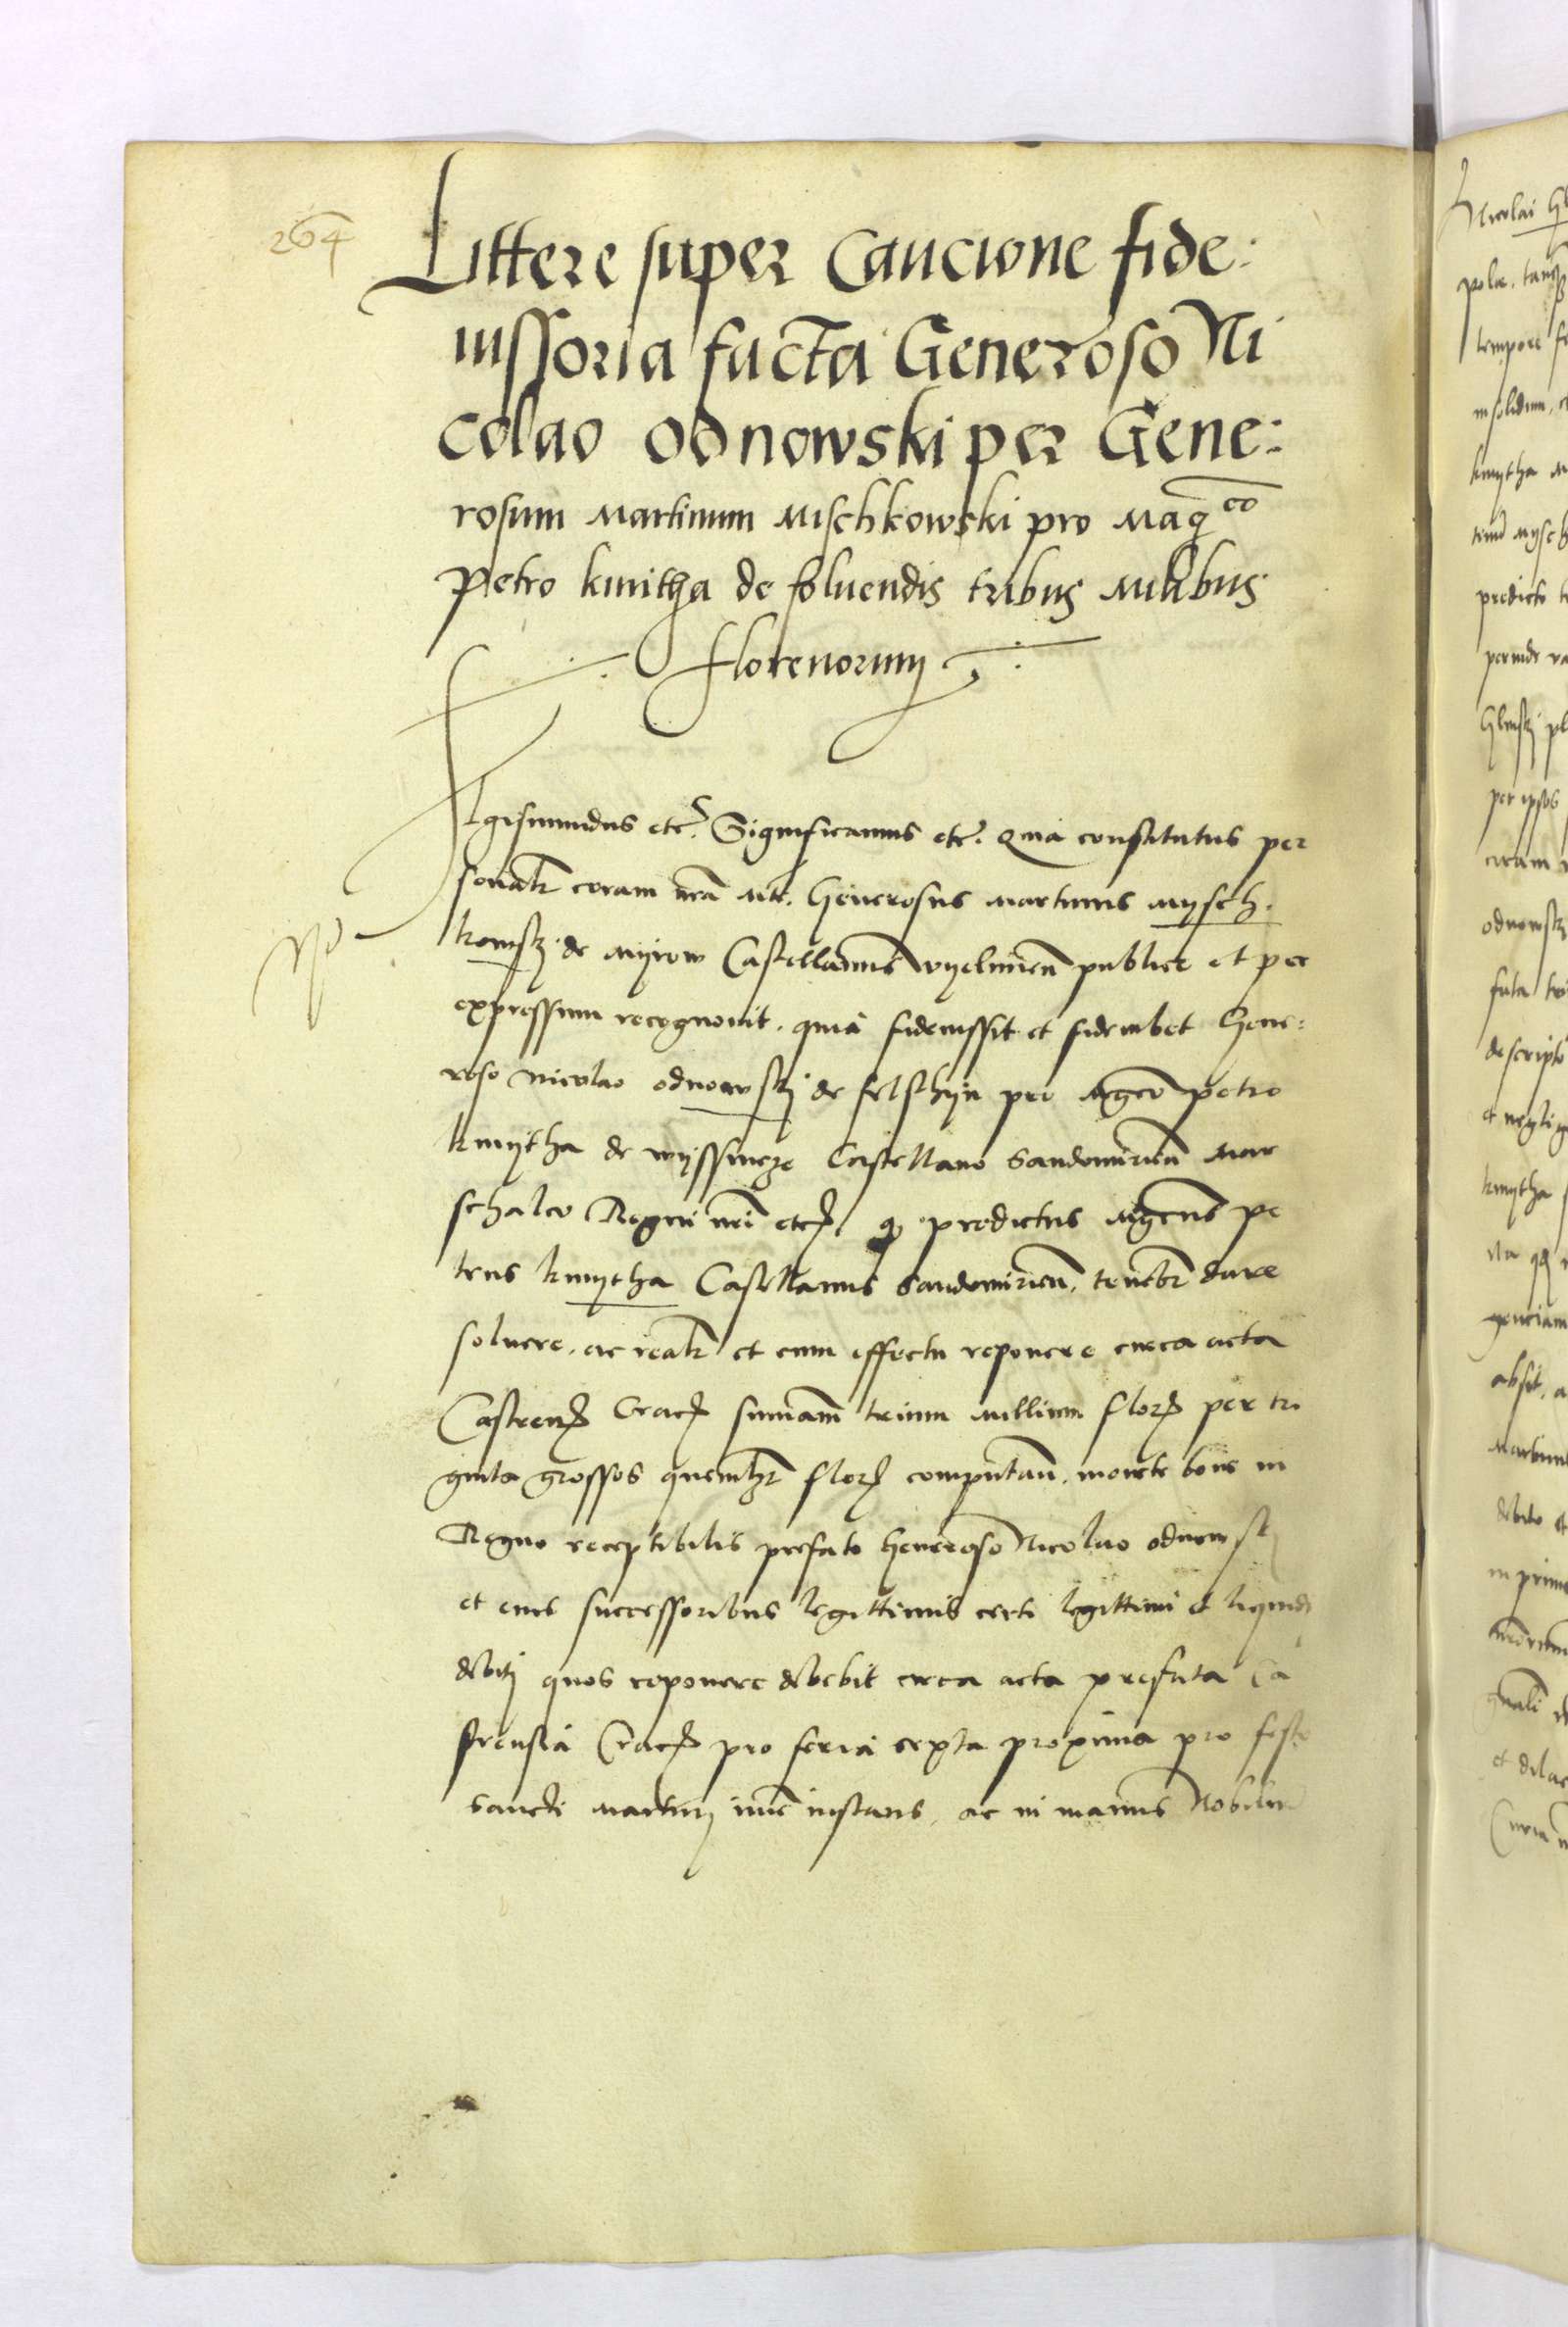 264
Littere super Caucione fide:
iussoria facta Generoso Ni
colao Odnowski per Gene:
rosum Martinum Mischkowski pro Magco
Petro kmitha de soluendis tribus Milibus
florenorum
Sigismundus etc. Significamus etc. Quia constitutus per
sonalr coram nra Mte. Generosus Martinus Mysch.
kowskj de Myrow Castellanus Wyelunen publice et per
expressum recognouit. quia fideiussit et fideiubet Gene:
roso Nicolao Odnowskj de felschyn pro Mgco Petro
kmytha de Wyssnycze Castellano Sandomirien Mar
schalco Regni nri etc. q predictus Mgcus Pe
trus kmytha Castellanus Sandomirien. tenebr dare
soluere. ac realr et cum effectu reponere circa acta
Castren Crac summam trium Millium flor per tri
ginta grossos quemlr flor computan. monete bone in
Regno receptibilis prefato Generoso Nicolao Odnowskj
et eius successoribus legittimis certi legittimi et liquidi
debiti quos reponere debebit circa acta prefata Ca
strensia Crac pro feria sexta proxima pro festo
Sancti Martini nunc instans. ac in manus Nobilium
Nicolai
pola.
tempore
insolidum.
kmytha
predicto
perinde
per ipsos
coram
odnowskj
fata
descripto
kmytha
absit.
debito et
in primo